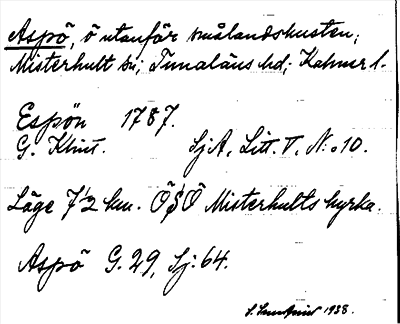 Aspö, ö utanför smålandskusten;
Misterhult sn; Tunaläns hd; Kalmar l.
Espön 1787.
G. Klint. SjA, Litt. V, N:o 10.
Läge 7 1/2 km. ÖSÖ Misterhults kyrka.
Aspö G. 29, Sj: 64.
1938.